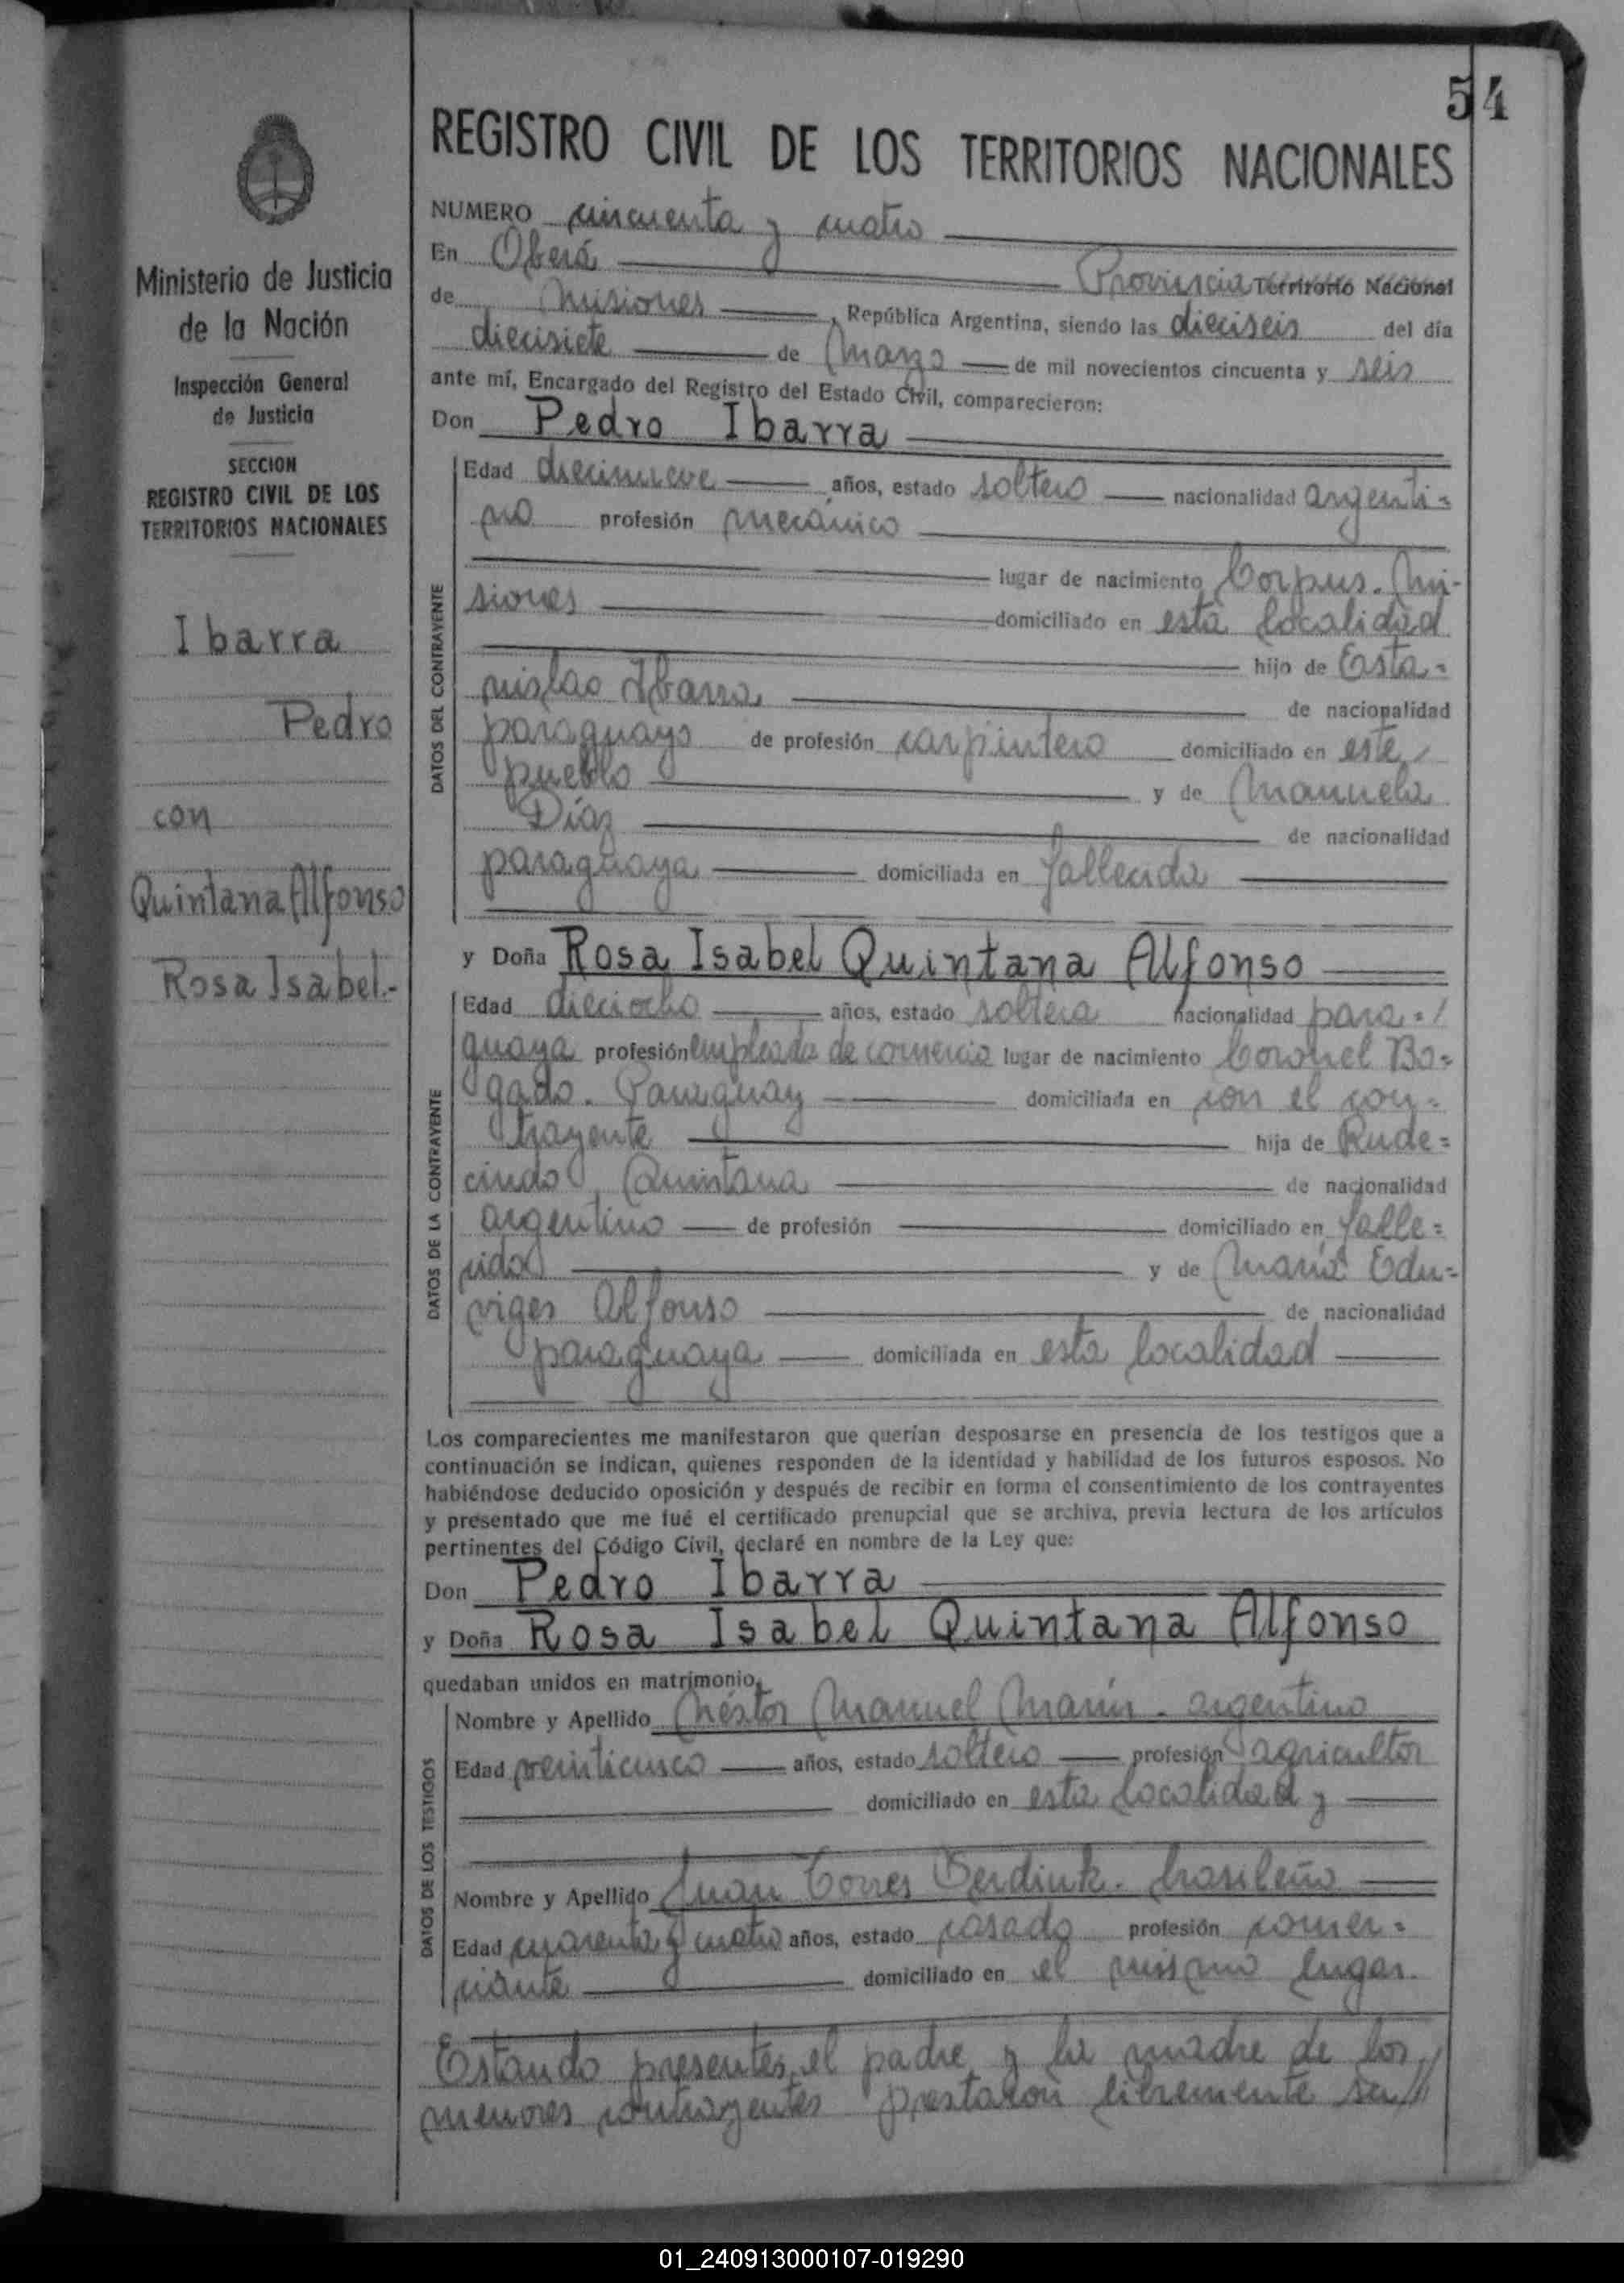 54
REGISTRO CIVIL DE LOS TERRITORIOS NACIONALES
Ministerio de Justicia
de la Nación
Inspección General
de Justicia
SECCION
REGISTRO CIVIL DE LOS
TERRITORIOS NACIONALES
Ibarra
Pedro
con
Quintana Alfonso
Rosa Isabel.-
NUMERO cincuenta y cuatro
En Oberá Provincia Territorio Nacional
de Misiones, República Argentina, siendo las dieciseis del día
diecisiete de Marzo de mil novecientos cincuenta y seis
ante mí, Encargado del Registro del Estado Civil, comparecieron:
Don Pedro Ibarra
DATOS DEL CONTRAYENTE
Edad diecinueve años, estado soltero nacionalidad argenti=
no profesión mecánico
lugar de nacimiento Corpus. Mi-
siones domiciliado en esta localidad
hijo de Esta=
nislao Ibarra de nacionalidad
paraguayo de profesión carpintero domiciliado en este
pueblo y de Manuela
Díaz de nacionalidad
paraguaya domiciliada en fallecida
y Doña Rosa Isabel Quintana Alfonso
DATOS DE LA CONTRAYENTE
Edad dieciocho años, estado soltera nacionalidad para=/
guaya profesión empleada de comercio lugar de nacimiento Coronel Bo=
gado. Paraguay domiciliada en con el con=
trayente hija de Rude=
cindo Quintana de nacionalidad
argentino de profesión domiciliado en falle=
cido y de María Edu=
viges Alfonso de nacionalidad
paraguaya domiciliada en esta localidad
Los comparecientes me manifestaron que querían desposarse en presencia de los testigos que a
continuación se indican, quienes responden de la identidad y habilidad de los futuros esposos. No
habiéndose deducido oposición y después de recibir en forma el consentimiento de los contrayentes
y presentado que me fué el certificado prenupcial que se archiva, previa lectura de los artículos
pertinentes del Código Civil, declaré en nombre de la Ley que:
Don Pedro Ibarra
y Doña Rosa Isabel Quintana Alfonso
quedaban unidos en matrimonio.
DATOS DE LOS TESTIGOS
Nombre y Apellido Néstor Manuel Marín. argentino
Edad veinticinco años, estado soltero profesión agricultor
domiciliado en esta localidad y
Nombre y Apellido Juan Torres brasileño
Edad cuarenta y cuatro años, estado casado profesión comer=
ciante domiciliado en el mismo lugar.
Estando presentes el padre y la madre de los
menores contrayentes prestaron libremente su//
01_240913000107-019290